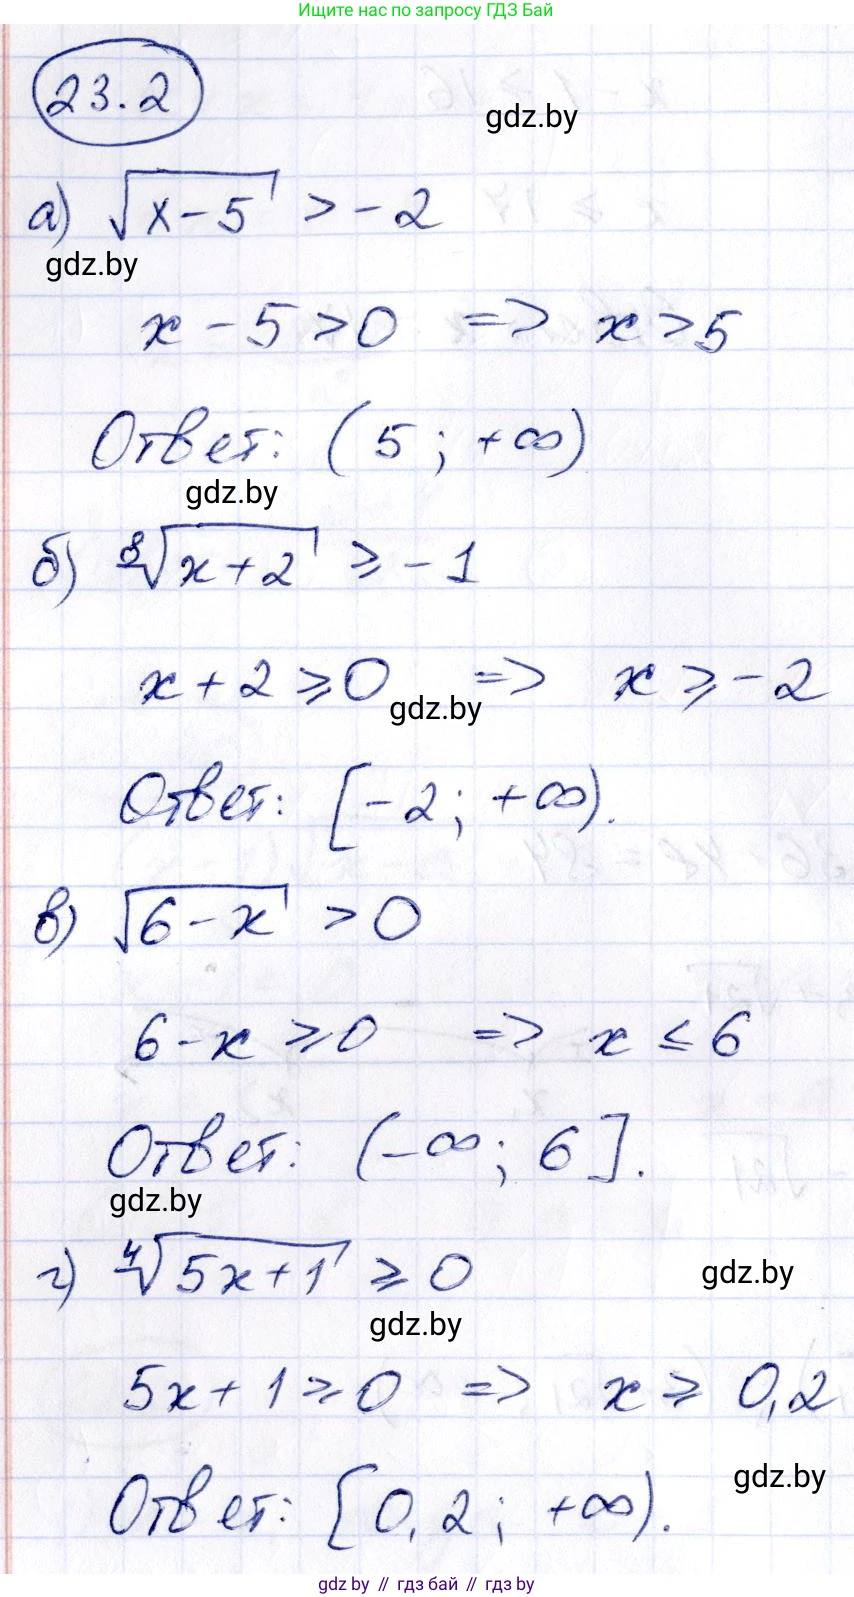 Ищите нас по запросу ГДЗ Бай
23.2
gdz.by
а) √(x-5) > -2
gdz.by
x - 5 > 0 => x > 5
Ответ: (5; +∞)
gdz.by
б) ⁸√(x+2) ≥ -1
x + 2 ≥ 0 => x ≥ -2
gdz.by
Ответ: [-2; +∞).
в) √(6-x) > 0
6 - x ≥ 0 => x ≤ 6
Ответ: (-∞; 6].
gdz.by
г) ⁴√(5x+1) ≥ 0
gdz.by
gdz.by
5x + 1 ≥ 0 => x ≥ 0,2
gdz.by
Ответ: [0,2; +∞).
gdz by // гдз бай // gdz by